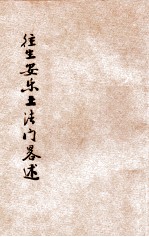 往生安乐土法门略述